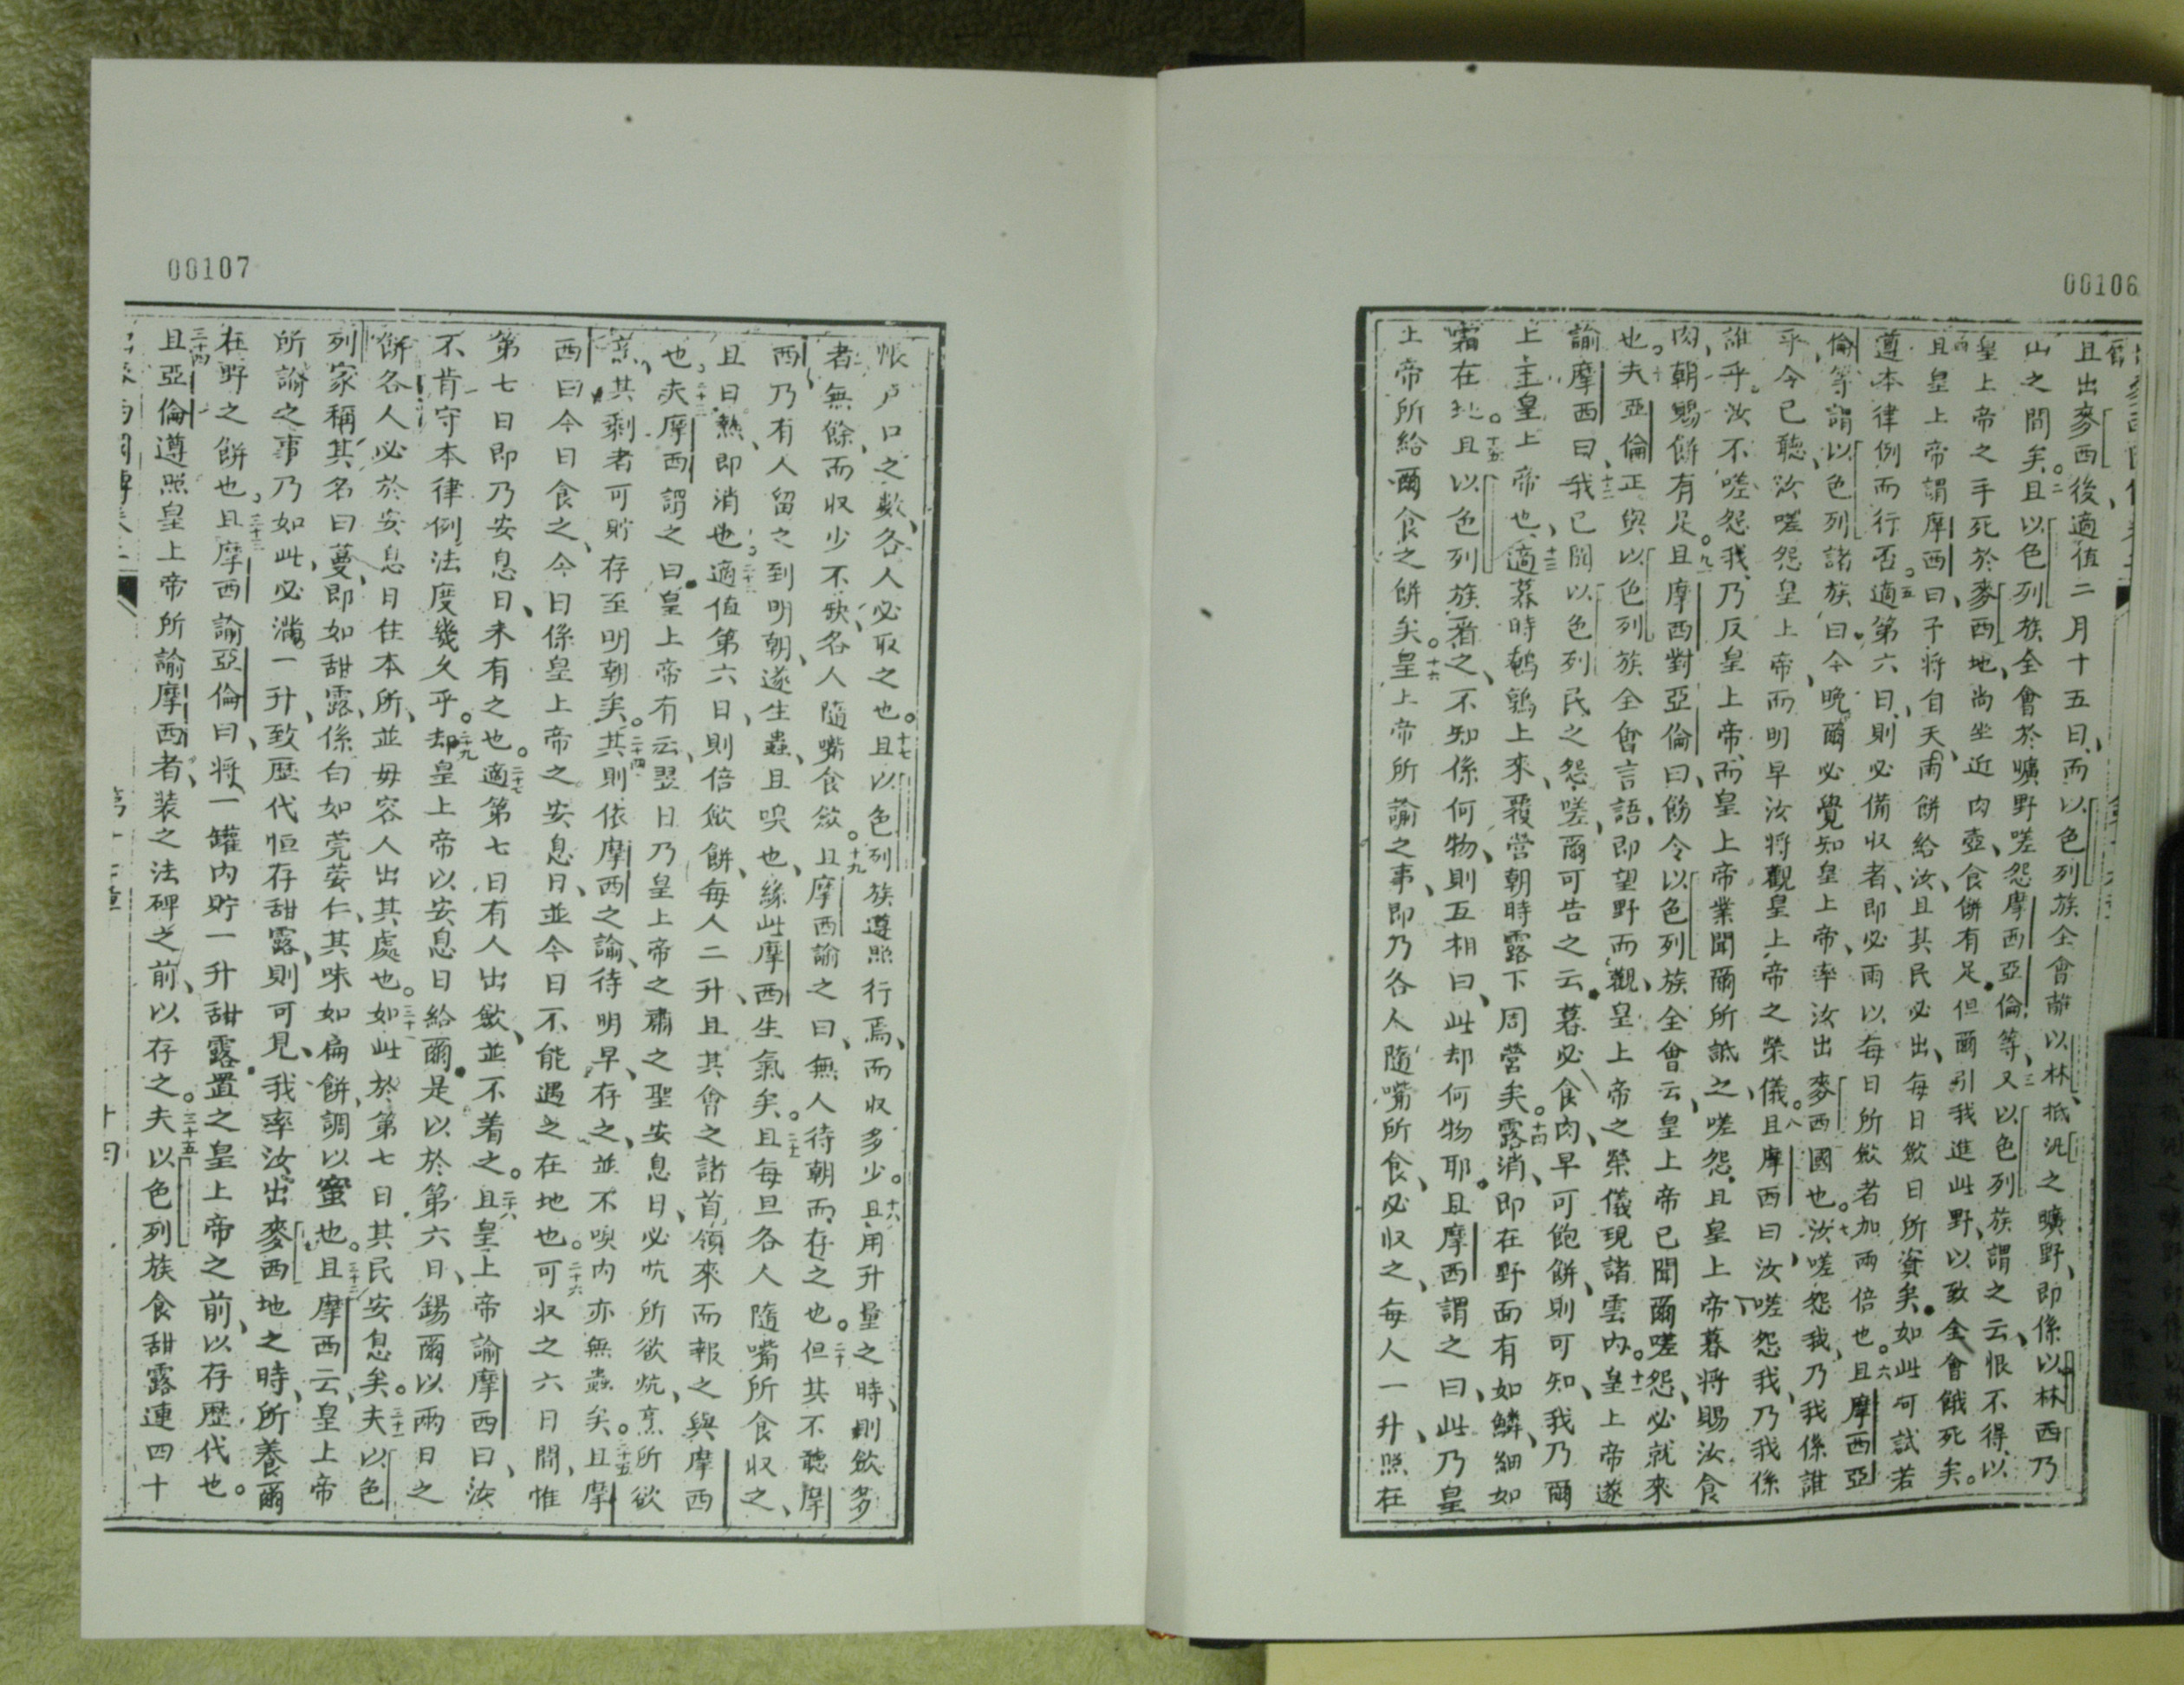 00106
且出麥西後適值二月十五日、而以色列族全會離以林、抵汎之曠野、即係以林西乃
山之間矣。二且以色列族全會於曠野嗟怨摩西亞倫等、三又以色列族謂之云、恨不得以
皇上帝之手死於麥西地、尚坐近肉壺、食餅有足、但爾引我進此野、以致全會餓死矣。
四且皇上帝謂摩西曰、予將自天、雨餅給汝、且其民必出、每日斂日所資矣、如此可試若
遵本律例而行否。五適第六日、則必備收者、即必雨以每日所斂者加兩倍也。六且摩西亞
倫等謂以色列諸族曰、今晚爾必覺知皇上帝、率汝出麥西國也。七汝嗟怨我、乃我係誰
乎、今已聽汝嗟怨皇上帝、而明早汝將觀皇上帝之榮儀。八且摩西曰、汝嗟怨我、乃我係
誰乎。汝不嗟怨我、乃反皇上帝、而皇上帝業聞爾所詆之嗟怨、且皇上帝暮將賜汝食
肉、朝賜餅有足。九且摩西對亞倫曰、飭令以色列族全會云、皇上帝已聞爾嗟怨、必就來
也。十夫亞倫正與以色列族全會言語、即望野而觀、皇上帝之榮儀現諸雲內。十一皇上帝遂
諭摩西曰、十二我已聞以色列民之怨嗟、爾可告之云、暮必食肉、早可飽餅、則可知、我乃爾
上主皇上帝也、十三適暮時鵪鶉上來、覆營、朝時露下周營矣。十四露消、即在野面有如鱗、細如
霜在地。十五且以色列族看之、不知係何物、則互相曰、此却何物耶、且摩西謂之曰、此乃皇
上帝所給爾食之餅矣。十六皇上帝所諭之事、即乃各人隨嘴所食、必收之、每人一升、照在
00107
帳戶口之數、各人必取之也。十七且以色列族遵照行焉、而收多少。十八且用升量之時、則斂多
者無餘、而收少不缺、各人隨嘴食斂。十九且摩西諭之曰、無人待朝而存之也。二十但其不聽摩
西、乃有人留之到明朝、遂生蟲、且嗅也、緣此摩西生氣矣。二十一且每旦各人隨嘴所食收之、
且日熱、即消也、二十二適值第六日、則倍斂餅、每人二升、且其會之諸首領來而報之與摩西
也、二十三夫摩西謂之曰、皇上帝有云、翌日乃皇上帝之肅之聖安息日、必炕所欲炕、烹所欲
烹、其剩者可貯存至明朝矣。二十四其則依摩西之諭、待明早、存之、並不嗅、內亦無蟲矣。二十五且摩
西曰、今日食之、今日係皇上帝之安息日、並今日不能遇之在地也。二十六可收之六日間、惟
第七日即乃安息日、未有之也。二十七適第七日有人出斂、並不着之。二十八且皇上帝諭摩西曰、汝
不肯守本律例法度幾久乎。二十九却皇上帝以安息日給爾、是以於第六日、錫爾以兩日之
餅、各人必於安息日住本所、並毋容人出其處也。三十如此於第七日其民安息矣。三十一夫以色
列家稱其名曰蔓、即如甜露、係白如莞荽仁、其味如扁餅、調以蜜也。三十二且摩西云、皇上帝
所諭之事乃如此、必滿一升、致歷代恒存甜露、則可見、我率汝出麥西地之時、所養爾
在野之餅也、三十三且摩西諭亞倫曰、將一罐內貯一升甜露、置之皇上帝之前、以存歷代也。
三十四且亞倫遵照皇上帝所諭摩西者、裝之法碑之前、以存之。三十五夫以色列族食甜露連四十